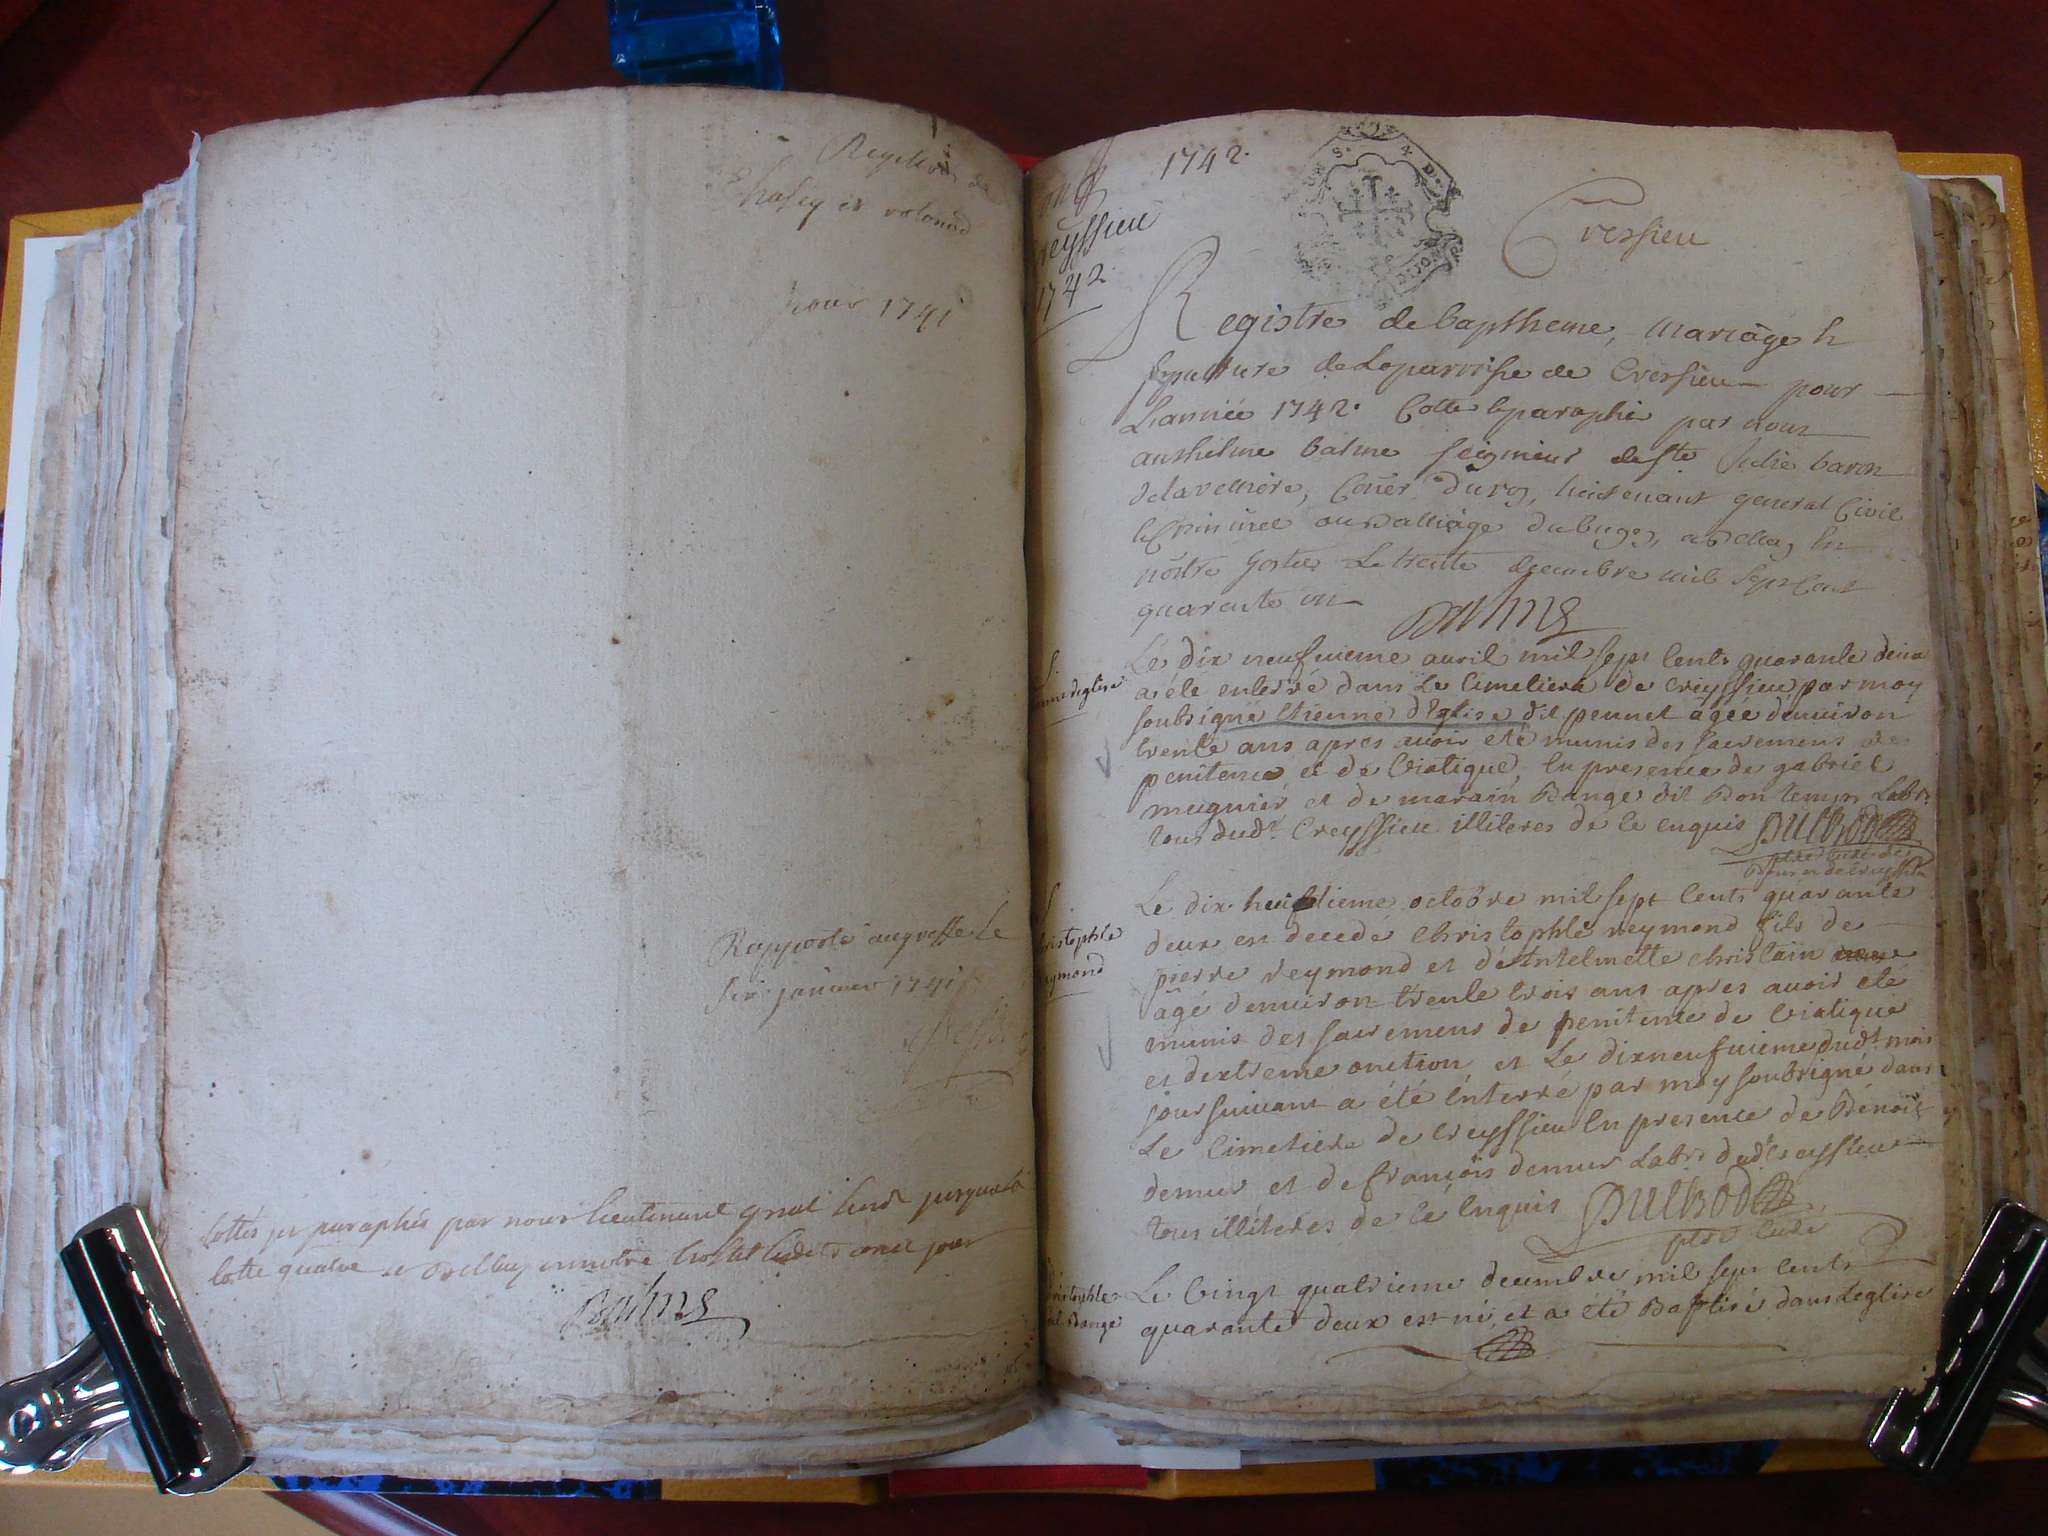 Registre de
Chasey et
pour 1741
Rapporté au greffe le
six janvier 1741
Cottés et paraphés par nous lieutenant gnal susd jusqua la
cotte quatre a Belley en notre hostel lesdits an et jour
Balme
Creyssieu
1742
1742.
Cressieu
Registre de baptheme, mariage &
sepulture de la parroisse de Cressieu pour
L'année 1742. Cotté & paraphé par nous
anthelme balme seigneur de ste Julie baron
de la velliere, Coner du roy, lieutenant general Civil
& Criminel au Balliage du bugey, a Belley en
nôtre hostel Le trente decembre mil sept Cent
quarante un
Balme
S.
etienne deglise
Le dix neufuieme auril mil sept cents quarante deux
a été enterré dans Le Cimetiere de Creyssieu par moy
soubsigné Etienne d'Eglise dit pennet agée denuiron
trente ans apres auoir eté munis des sacremens de
penitence et de Viatique, En presence de gabriel
meugnier et de marain Bange dit Bon temps Labrs
tous dudt. Creyssieu illiteres de ce enquis Dulbod
ptre curé de
S
Christophle
reymond
Le dix huictieme octobre mil sept cents quarante
deux est decedé Christophle reymond fils de
pierre reymond et d'Antelmette Christain
âgé denuiron trente trois ans apres auoir eté
munis des sacremens de penitence de Viatique
et dextreme onction et Le dixneufuieme dudt. mois
jour suiuant a été Enterré par moy soubsigné dans
Le Cimetiere de Creyssieu En presence de Benoit
demur et de françois demur Labrs. dudt Creyssieu
tous illiteres de ce Enquis Dulbod
ptre Curé
Christophle
Bange
Le Vingt quatrieme decembre mil sept cents
quarante deux est né, et a été Baptisé dans L'eglise